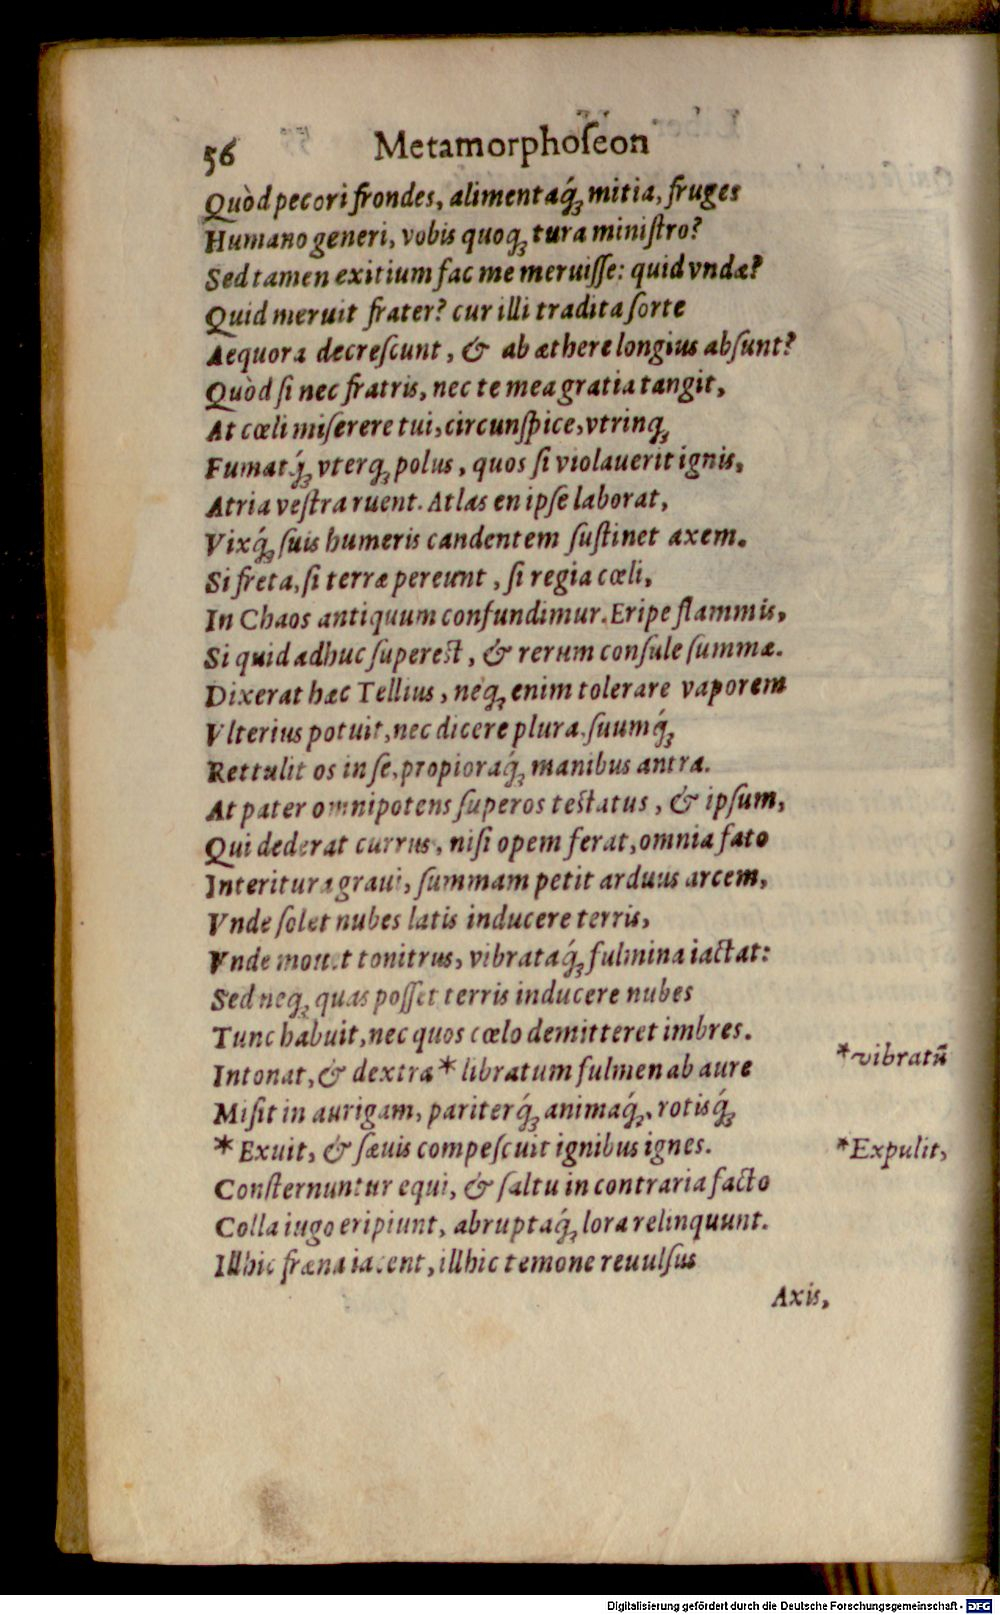 56 Metamorphoſeon
Quòd pecori frondes, alimentaq́; mitia, fruges
Humano generi, vobis quoq; tura miniſtro?
Sed tamen exitium fac me meruiſſe: quid vndæ?
Quid meruit frater? cur illi tradita ſorte
Aequora decreſcunt, & ab æthere longius abſunt?
Quòd ſi nec fratris, nec te mea gratia tangit,
At cœli miſerere tui, circunſpice, vtrinq;
Fumat q́; vterq; polus, quos ſi violauerit ignis,
Atria veſtra ruent. Atlas en ipſe laborat,
Vixq́; ſuis humeris candentem ſuſtinet axem.
Si freta, ſi terræ pereunt, ſi regia cœli,
In Chaos antiquum confundimur. Eripe flammis,
Si quid adhuc ſupereſt, & rerum conſule ſummæ.
Dixerat hæc Tellius, neq; enim tolerare vaporem
Vlterius potuit, nec dicere plura. ſuumq́;
Rettulit os in ſe, propioraq́; manibus antra.
At pater omnipotens ſuperos teſtatus, & ipſum,
Qui dederat currus, niſi opem ferat, omnia fato
Interitura graui, ſummam petit arduus arcem,
Vnde ſolet nubes latis inducere terris,
Vnde mouet tonitrus, vibrataq́; fulmina iactat:
Sed neq; quas poſſet terris inducere nubes
Tunc habuit, nec quos cœlo demitteret imbres.
Intonat, & dextra * libratum fulmen ab aure
*vibratū
Miſit in aurigam, pariterq́; animaq́;, rotisq́;
* Exuit, & ſæuis compeſcuit ignibus ignes.
*Expulit,
Conſternuntur equi, & ſaltu in contraria facto
Colla iugo eripiunt, abruptaq́; lora relinquunt.
Illhic fræna iacent, illhic temone reuulſus
Axis,
Digitalisierung gefördert durch die Deutsche Forschungsgemeinschaft - DFG